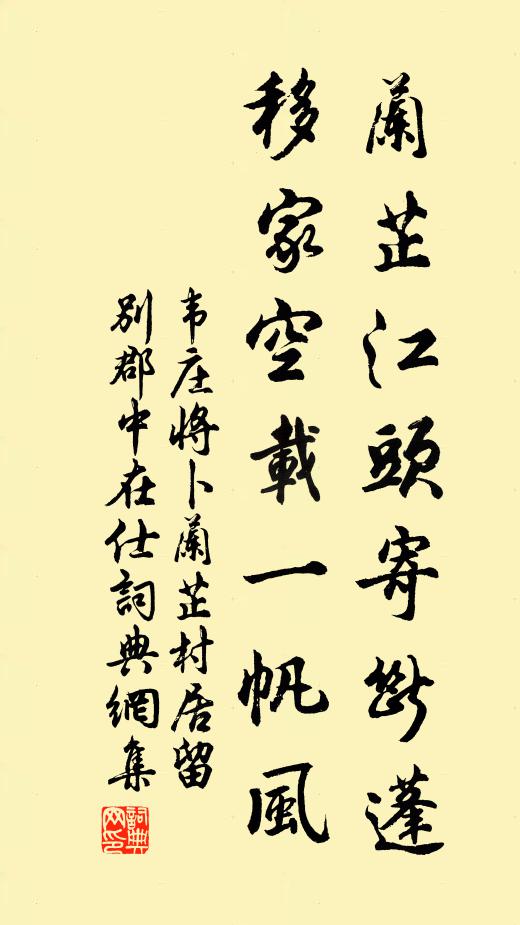 蘭芷江頭寄斷蓬
移家空載一帆風
韦庄將卜蘭芷村居留
別郡中在仕詞典網集
詞典网印